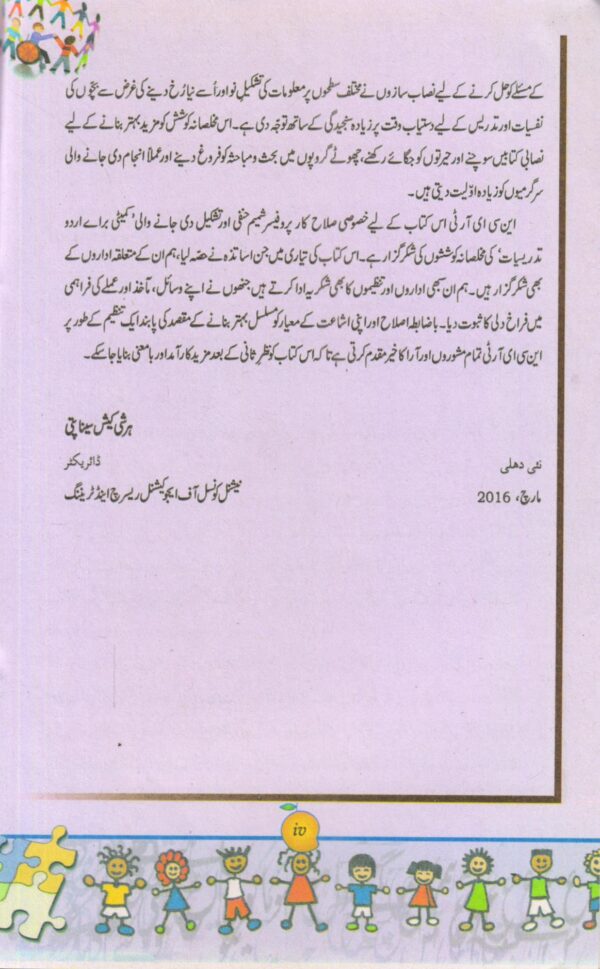 کے مسئلے کو حل کرنے کے لیے نصاب سازوں نے مختلف سطحوں پر معلومات کی تشکیلِ نو اور اُسے نیا رُخ دینے کی غرض سے بچّوں کی
نفسیات اور تدریس کے لیے دستیاب وقت پر زیادہ سنجیدگی کے ساتھ توجّہ دی ہے۔ اس مخلصانہ کوشش کو مزید بہتر بنانے کے لیے
نصابی کتابیں سوچنے اور حیرتوں کو جگائے رکھنے، چھوٹے گروپوں میں بحث و مباحثہ کو فروغ دینے اور عملاً انجام دی جانے والی
سرگرمیوں کو زیادہ اوّلیت دیتی ہیں۔
این سی ای آر ٹی اس کتاب کے لیے خصوصی صلاح کار پروفیسر شمیم حنفی اور تشکیل دی جانے والی 'کمیٹی براے اردو
تدریسیات' کی مخلصانہ کوششوں کی شکر گزار ہے۔ اس کتاب کی تیاری میں جن اساتذہ نے حصّہ لیا، ہم ان کے متعلقہ اداروں کے
بھی شکر گزار ہیں۔ ہم ان سبھی اداروں اور تنظیموں کا بھی شکریہ ادا کرتے ہیں جنھوں نے اپنے وسائل، مآخذ اور عملے کی فراہمی
میں فراخ دلی کا ثبوت دیا۔ باضابطہ اصلاح اور اپنی اشاعت کے معیار کو مسلسل بہتر بنانے کے مقصد کی پابند ایک تنظیم کے طور پر
این سی ای آر ٹی تمام مشوروں اور آرا کا خیر مقدم کرتی ہے تاکہ اس کتاب کو نظرِ ثانی کے بعد مزید کارآمد اور بامعنی بنایا جاسکے۔
ہرشی کیش سیناپتی
نئی دہلی ڈائریکٹر
مارچ، 2016 نیشنل کونسل آف ایجوکیشنل ریسرچ اینڈ ٹریننگ
iv